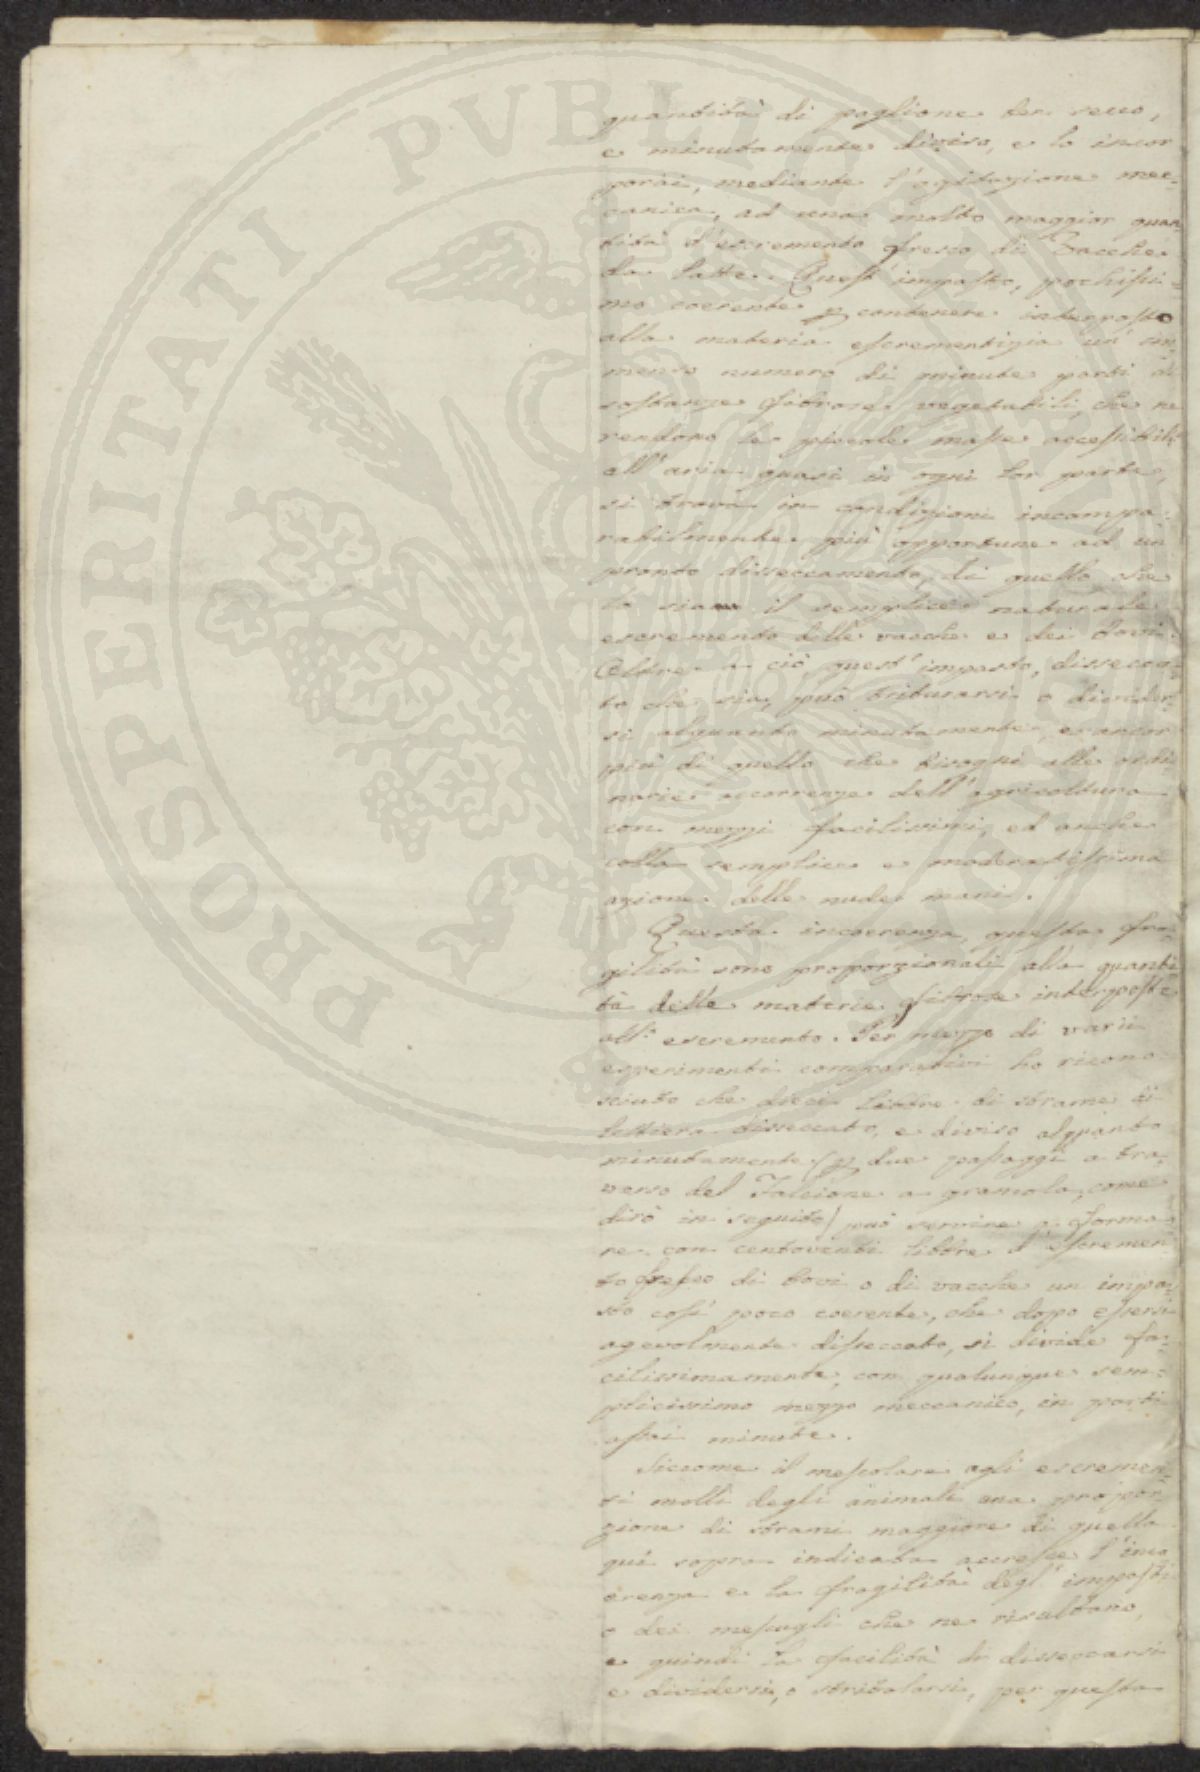 PROSPERITATI PVBLICAE
quantità di paglione ben secco,
e minutamente diviso, e lo incor
porai, mediante l'agitazione mec-
canica, ad una molto maggior quan
tità d'escremento fresco di Vacche
da latte. Quest'impasto, pochissi-
mo coerente p contenere interposto
alla materia escrementizia un' im
menso numero di minute parti di
sostanze fibrose vegetabili che ne
rendono le piccole masse accessibili
all'aria quasi in ogni lor parte,
si trova in condizioni incompa-
rabilmente più opportune ad un
pronto disseccamento, di quello che
lo sia il semplice naturale
escremento delle vacche e dei bovi.
Oltre a ciò quest'impasto, dissecca-
to che sia, può triturarsi o divider-
si alquanto minutamente, e ancor
più di quello che bisogni alle ordi-
narie occorrenze dell'agricoltura
con mezzi facilissimi, ed anche
colla semplice e moderatissima
azione delle nude mani.
Questa incoerenza, questa fra-
gilità sono proporzionali alla quanti-
tà delle materie fibrose interposte
all' escremento. Per mezzo di varii
esperimenti comparativi ho ricono-
sciuto che dieci libbre di strame di
lettiera disseccato, e diviso alquanto
minutamente (p due passaggi a tra-
verso del Falcione a gramola, come
dirò in seguito) può servire a forma-
re con centoventi libbre d'escremen-
to fresco di bovi o di vacche un impa-
sto così poco coerente, che dopo essersi
agevolmente disseccato, si divide fa-
cilissimamente, con qualunque sem-
plicissimo mezzo meccanico, in parti
assai minute.
Siccome il mescolare agli escremen-
ti molli degli animali una propor-
zione di strami maggiore di quella
quì sopra indicata accresce l'inco
erenza e la fragilità degl'impasti
o dei mescugli che ne risultano,
e quindi la facilità di disseccarsi
e dividersi, o stritolarsi, per questa